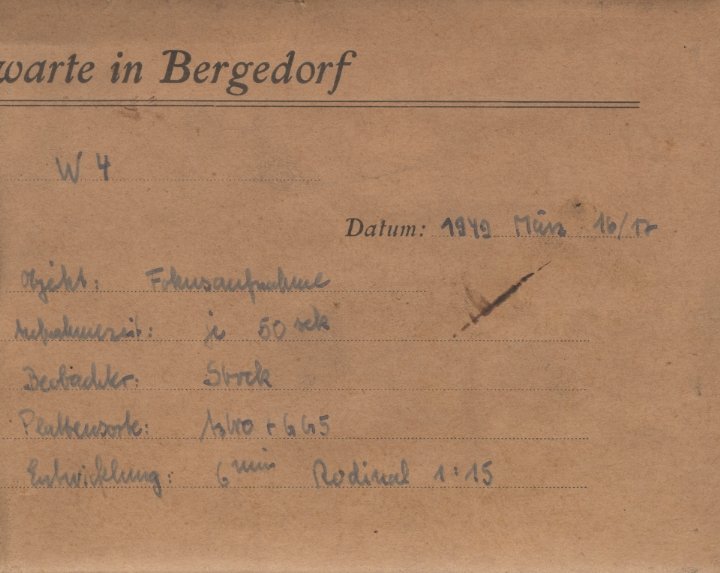 warte in Bergedorf
W 4
Datum: 1949 März 16/17
Objekt: Fokusaufnahme
Aufnahmezeit: je 50 sek
Beobachter: Strock
Plattensorte: Astro + GG5
Entwicklung: 6 min Rodinal 1:15